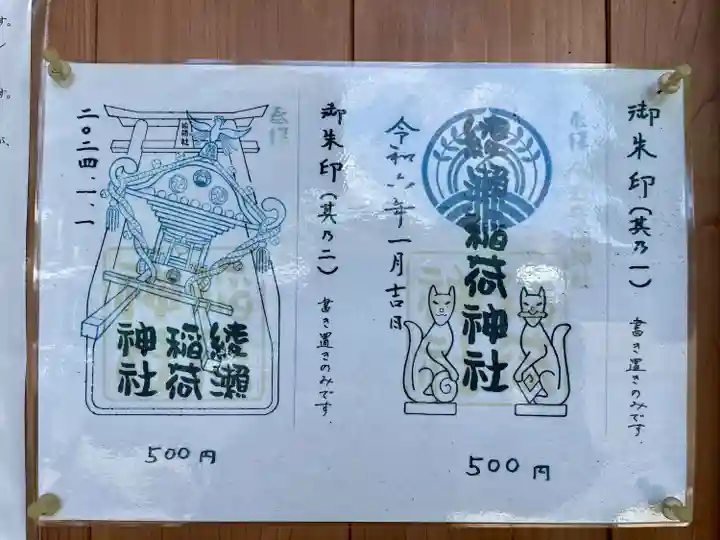 御朱印(其乃一)
書き置きのみです.
奉拝
綾瀬稲荷神社
令和六年一月吉日
500円
御朱印(其乃二)
書き置きのみです.
奉拝
綾瀬
稲荷
神社
二〇二四.一.一
500円
す。
す。